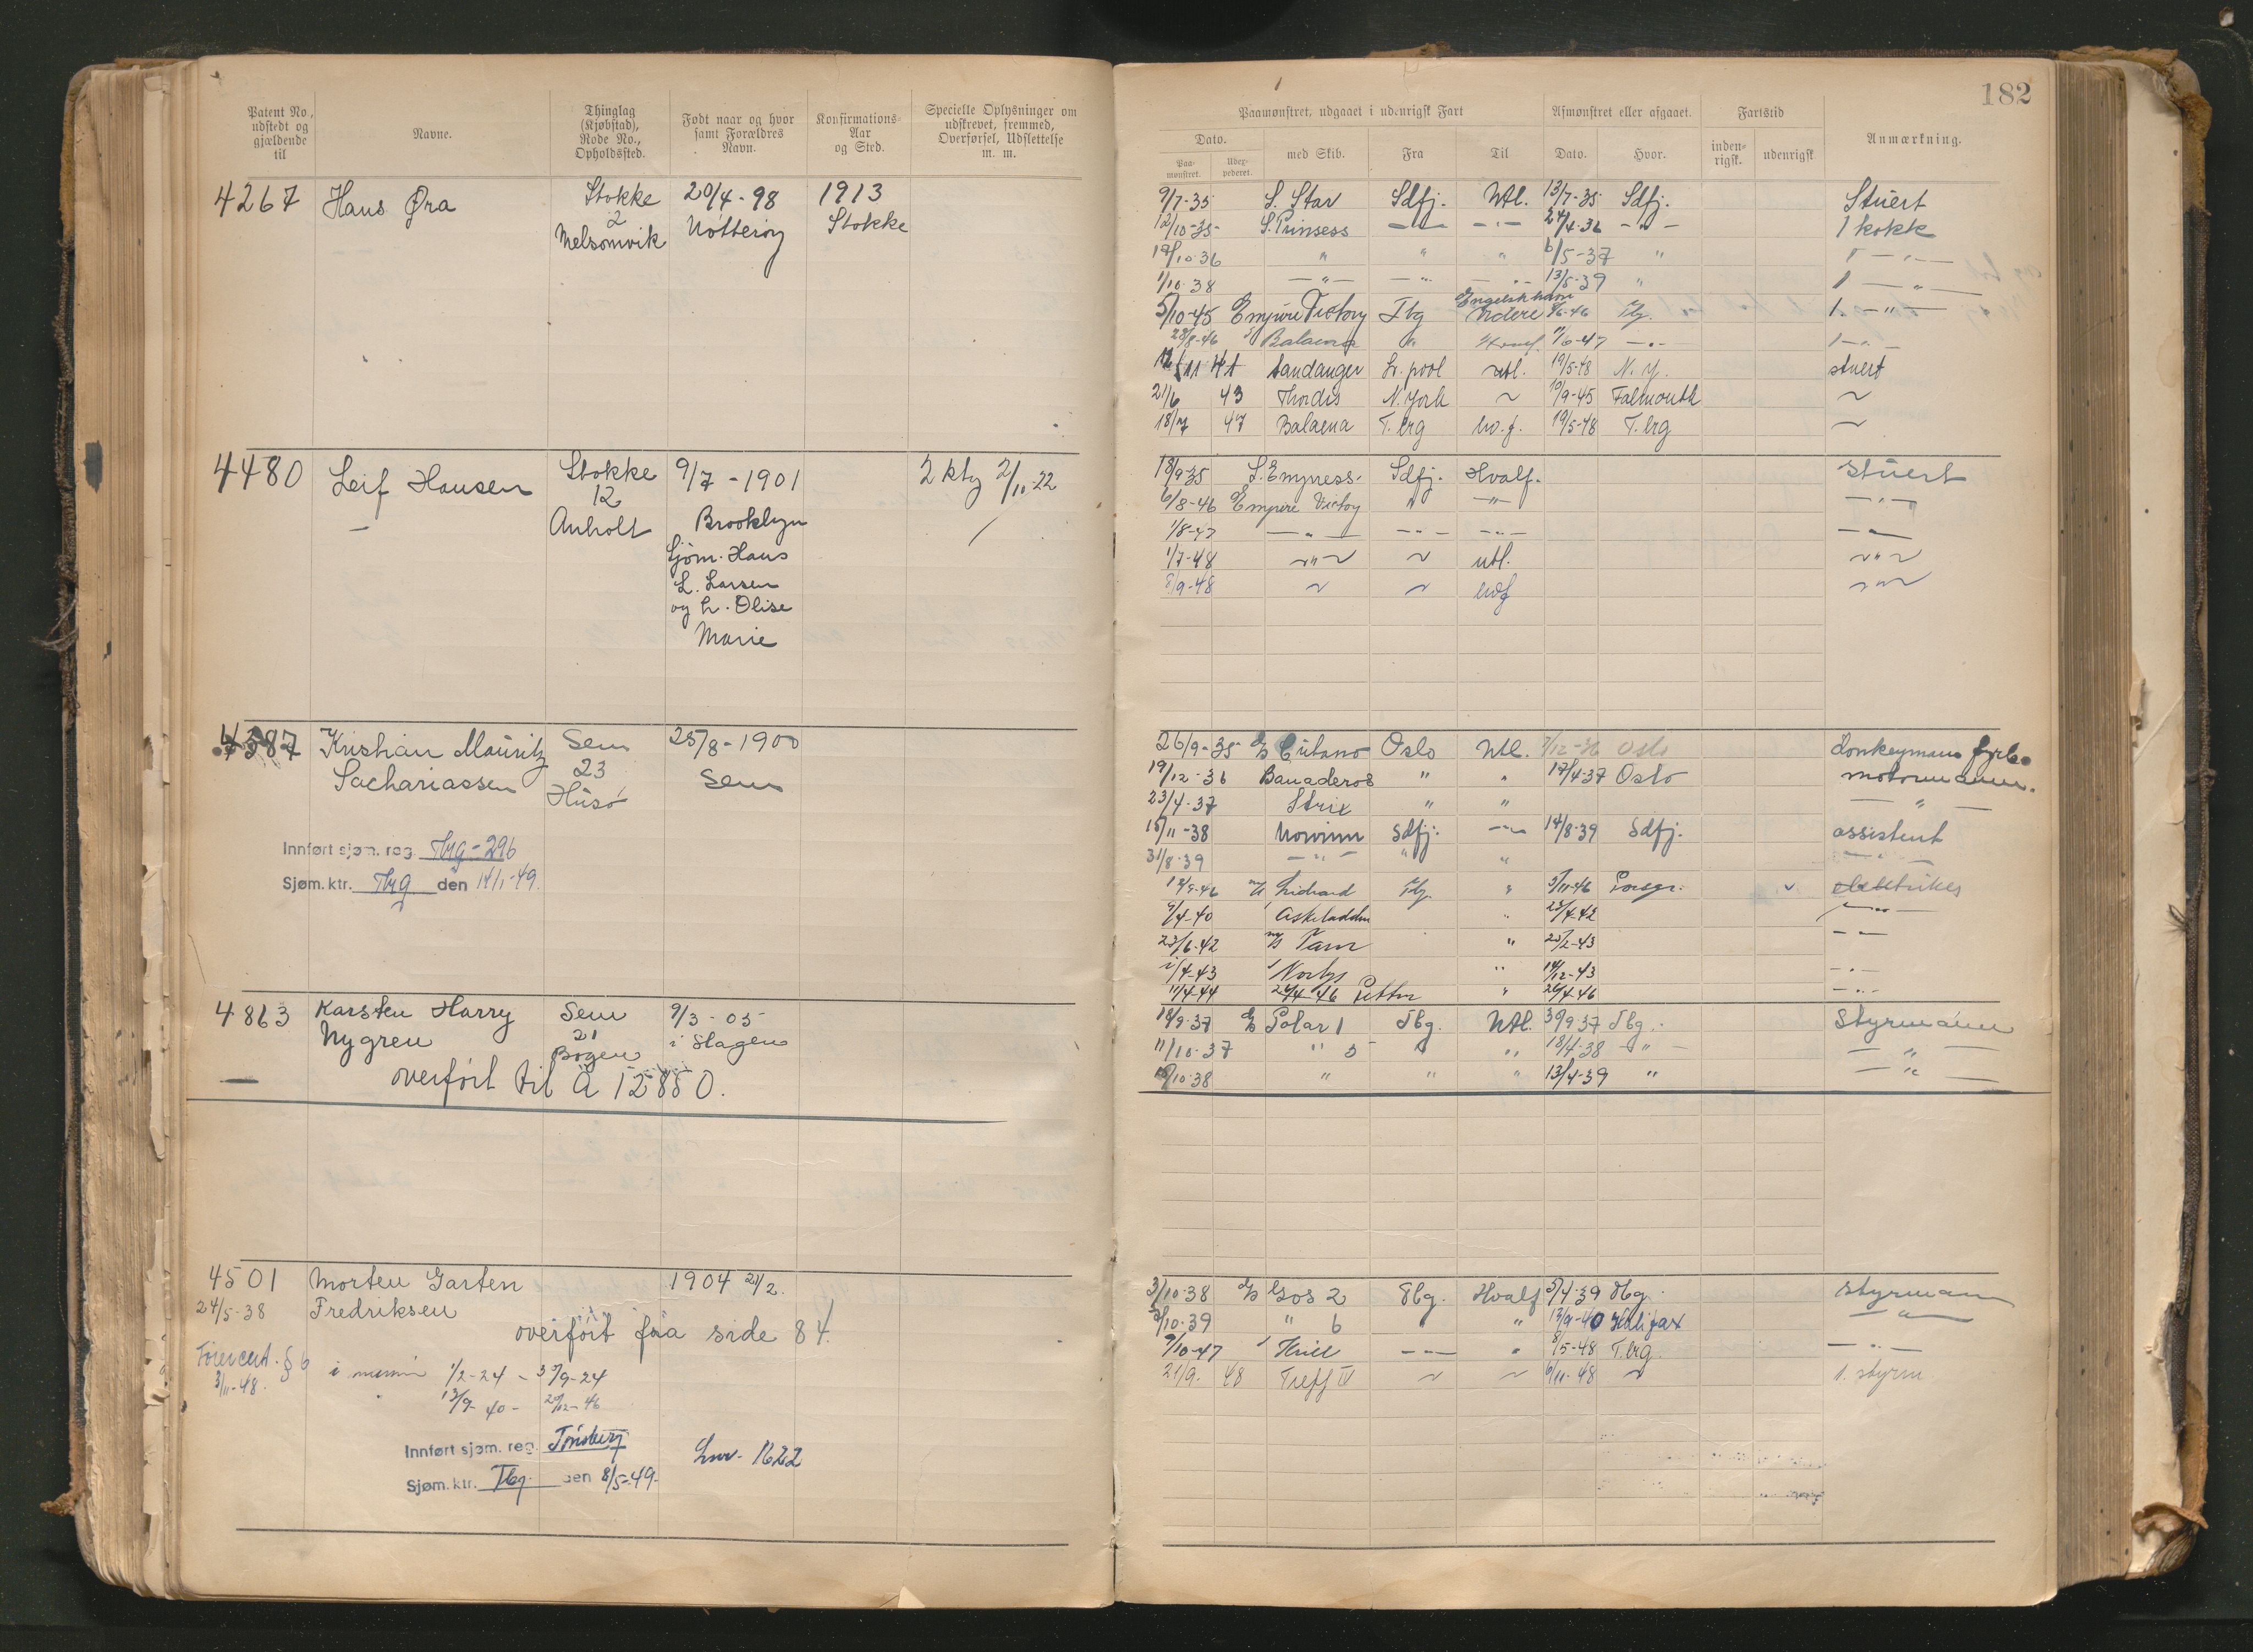 182
Patent No, udstedt og gjældende til
Navne.
Thinglag (Kjøbstad), Rode No., Opholdssted.
Født naar og hvor samt Forældres Navn.
Konfirmations-Aar og Sted.
Specielle Oplysninger om udskrevet, fremmed, Overførsel, Udslettelse m. m.
Paamønstret, udgaaet i udenrigsk Fart
Afmønstret eller afgaaet.
Fartstid
Anmærkning.
Dato.
Paa-mønstret.
med Skib.
Fra
Til
Dato.
Hvor.
inden-rigsk.
udenrigsk
4267 Hans Øra Stokke 20/4-98 1913
2 Nøtterøy Stokke
Melsomvik
9/7-35 S. Star Sdfj. Utl. 13/7-35 Sdfj. Stuert
12/10-35 S. Prinsess -"- -"- 24/4-36 -"- 1 kokk
19/10-36 " " " 6/5-37 " " -"-
1/10-38 -"- -"- -"- 13/5-39 " " -"-
Engelsk havn
5/10-45 Empire Victory Tbg Videre 9/6-46 Tbg. 1. -"-
28/8-46 Balaena " 11/6-47 -"- 1 -"-
11 41 Sandanger L. pool utl. 19/5-48 N. Y. stuert
21/6 43 Thordis N. York ~ 19/9-45 Falmouth ~
18/7 47 Balaena T. brg hv.f. 19/5-48 T. brg ~
4480 Leif Hansen Stokke 9/7-1901 2 kty 2/11-22
12 Brooklyn
Anholt Sjøm. Hans
L. Larsen
og h. Olise
Marie
18/9-35 S. Empress. Sdfj. Hvalf. stuert
6/8-46 Empire Victory " -"- -"-
1/8-47 -"- -"- -"- -"-
1/7-48 ~"~ ~ utl. ~"~
8/9-48 ~ ~ hvf ~"~
4587 Kristian Mauritz Sem 25/8-1900
Sachariassen 23 Sem
Husø
Innført sjøm. reg. Tbg-296
Sjøm. ktr. Tbg den 14/1-49.
26/9-35 Cubano Oslo Utl. 7/12-36 Oslo Donkeymann fyrb.
19/12-36 Banaderos " " 17/4-37 Oslo motormann.
23/4-37 Strix " " -"-
15/11-38 Norvinn Sdfj. -"- 14/8-39 Sdfj. assistent
31/8-39 -"- " " -"-
12/9-46 Lidvard Tbg. " 3/11-46 Porsgr. v elektriker
9/4-40 Askeladden " 23/4-42 -"-
23/6-42 M/T Pan " 25/2-43 -"-
1/4-43 Norbys " 14/12-43 -"-
11/4-44 24/4-46 Petter " 26/4-46 -"-
4863 Karsten Harry Sem 9/3-05
Nygren 21 i Slagen
Bogen
overført til A 12880.
18/9-37 Polar 1 Tbg. Utl. 30/9 37 Tbg. Styrmann
11/10-37 " 5 " " 18/4-38 -"- -"-
10/10-38 " " " 13/4-39 " -"-
4501 Morten Garten 1904 21/2.
24/5-38 Fredriksen
overført fra side 84.
§ 6
3/11-48.
i marin 1/2-24 - 30/9-24
" 13/9-40 - 20/12-46
Innført sjøm. reg. Tønsberg
Sjøm. ktr. Tbg. den 8/5-49.
Lnr. 1622
3/10-38 Gos 2 Tbg. Hvalf 5/4-39 Tbg. styrmann
3/10-39 " 6 " " 13/9-40 Halifax -"-
9/10-47 Thrill -"- " 8/5-48 T.brg. -"-
21/9. 48 Treff IV ~ ~ 6/11-48 ~ 1. styrm